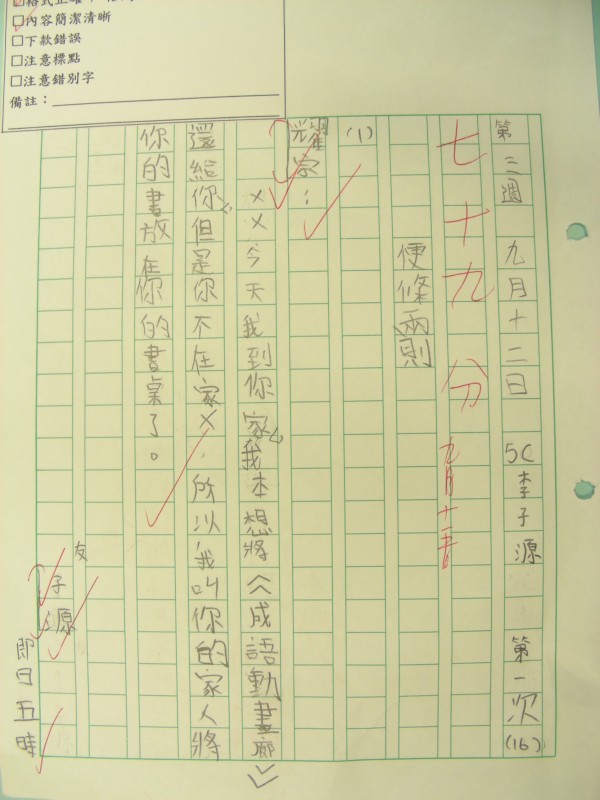 □內容簡潔清晰
□下款錯誤
□注意標點
□注意錯別字
備註：
第三週 九月十二日 5C 李子源 第一次(16)
七十九分
便條兩則
(1)
耀宗：
××今天我到你家，我本想將《成語動畫廊》
還給你，但是你不在家×，所以我叫你的家人將
你的書放在你的書桌了。
友
子源
即日五時